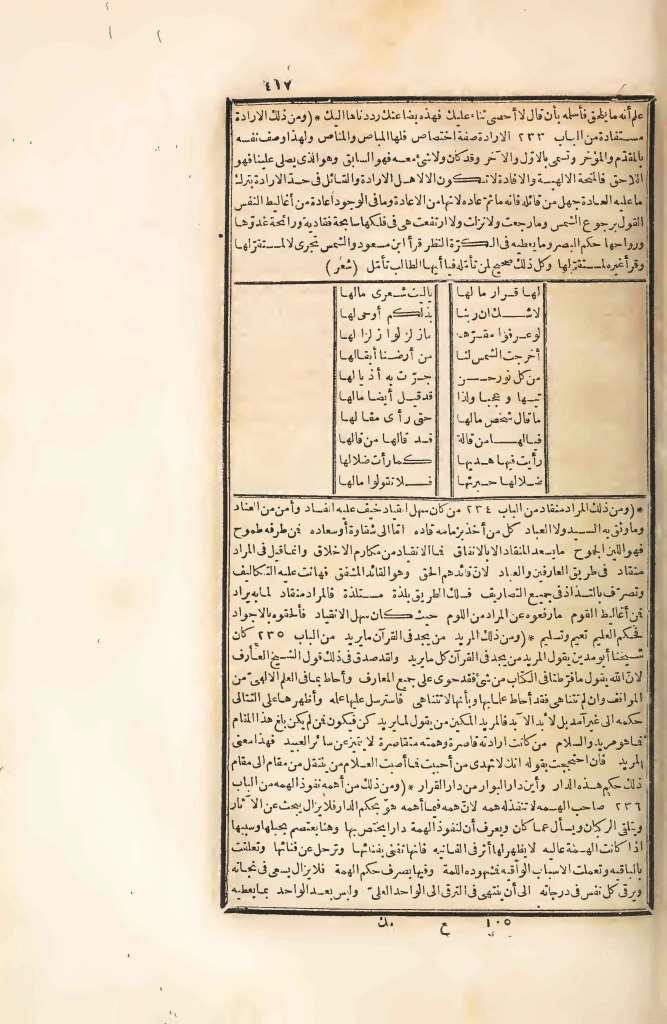 ٤١٧
علم أنه ما يلحق فأسلمه بأن قال لا أحصى ثناء عليك فهذه بضاعتك رددناها اليك * (ومن ذلك الارادة
مستفادة من الباب ٢٣٣ الارادة صفة اختصاص فلها المباص والمناص ولهذا وصف نفسه
بالمقدّم والمؤخر وتسمى بالاوّل والآخر وقد كان ولا شئ معه فهو السابق وهو الذى يصلى علينا فهو
اللاحق فالمنحة الالهية والافادة لا تكون الا لاهل الارادة والقائل فى حدّ الارادة بترك
ما عليه العادة جهل من قائله فانه ما ثم عاده لانها من الاعادة وما فى الوجود اعادة من أغاليط النفس
القول برجوع الشمس وما رجعت ولا نزلت ولا ارتفعت هى فى فلكها سابحة فغادية ورائحة غدوّها
ورواحها حكم البصر وما يعطيه فى الكرّة النظر قرأ ابن مسعود والشمس تجرى لا مستقرّ لها
وقرأ غيره لمستقرّ لها وكل ذلك صحيح لمن تأمّله فيا أيها الطالب تأمّل (شعر)
لها قرار ما لها يا ليت شعرى مالها
لا شك ان ربنا بذلكم أوحى لها
لو عرفوا مقرّها ما زلزلوا زلزالها
أخرجت الشمس لنا من أرضنا أثقالها
من كل نور حسن جرّت به أذيالها
تيها وعجبا ولذا قد قيل أيضا مالها
ما قال شخص مالها حتى رأى مقالها
فيالها من قالة قد قالها من قالها
رأيت فيها هديها كما رأت ضلالها
ضلالها حيرتها فلا تقولوا مالها
* (ومن ذلك المراد منقاد من الباب ٢٣٤ من كان سهل القياد خيف عليه الفساد وأمن من العناد
وما وثق به السيد ولا العباد كل من أخذ بزمامه قاده امّا الى شقاوة أو سعاده فمن طرفه طموح
فهو اللين الجموح ما يسعد المنقاد الا بالاتفاق فما الانقياد من مكارم الاخلاق وانما قيل فى المراد
منقاد فى طريق العارفين والعباد لان قائدهم الحق وهو القائد المشفق فهانت عليه التكاليف
وتصرّف بالتذاذ فى جميع التصاريف فسلك الطريق بلذة مستلذة فالمراد منقاد لما به يراد
فمن أغاليط القوم ما رفعوه عن المراد من اللوم حيث كان سهل الانقياد فألحقوه بالاجواد
فحكم العليم نعيم وتسليم * (ومن ذلك المريد من يجد فى القرآن ما يريد من الباب ٢٣٥ كان
شيخنا أبو مدين يقول المريد من يجد فى القرآن كل ما يريد ولقد صدق فى ذلك قول الشيخ العارف
لانّ الله يقول ما فرّطنا فى الكتاب من شئ فقد حوى على جميع المعارف وأحاط بما فى العلم الالهىّ من
المواقف وان لم تتناهى فقد أحاط علما بها وبأنها لا تتناهى فاسترسل عليها علمه وأظهرها على التتالى
حكمه الى غير أمد بل لابد الابد فالمريد المكين من يقول لما يريد كن فيكون فمن لم يكن بلغ هذا المقام
فما هو مريد والسلام من كانت ارادته قاصرة وهمته متقاصرة لا يتميز عن سائر العبيد فهذا معنى
المريد فان احتججت بقوله انك لا تهدى من أحببت فما أصبت السلام من ينتقل من مقام الى مقام
ذلك حكم هذه الدار وأين دار البوار من دار القرار * (ومن ذلك من أهمه نفوذ الهمه من الباب
٢٣٦ صاحب الهمه لا تنفذ له همه لانّ همه فيما أهمه هو بحكم الدار فلا يزال يبحث عن الآثار
ويتلقى الركبان ويسأل عما كان ويعرف أن لنفوذ الهمة دارا يختص بها وهنا يعتصم بحبلها وسببها
اذا كانت الهمة عاليه لا يظهر لها أثر فى الفانيه فانها تفنى بفنائها وترحل عن فنائها وتعلقت
بالباقيه وتعملت الاسباب الواقيه فشهوده اللمة وفيها يصرف حكم الهمة فلا يزال يسعى فى نجاته
ويرقى كل نفس فى درجاته الى أن ينتهى فى الترقى الى الواحد العلىّ وليس بعد الواحد بما يعطيه
١٠٥ ع مك